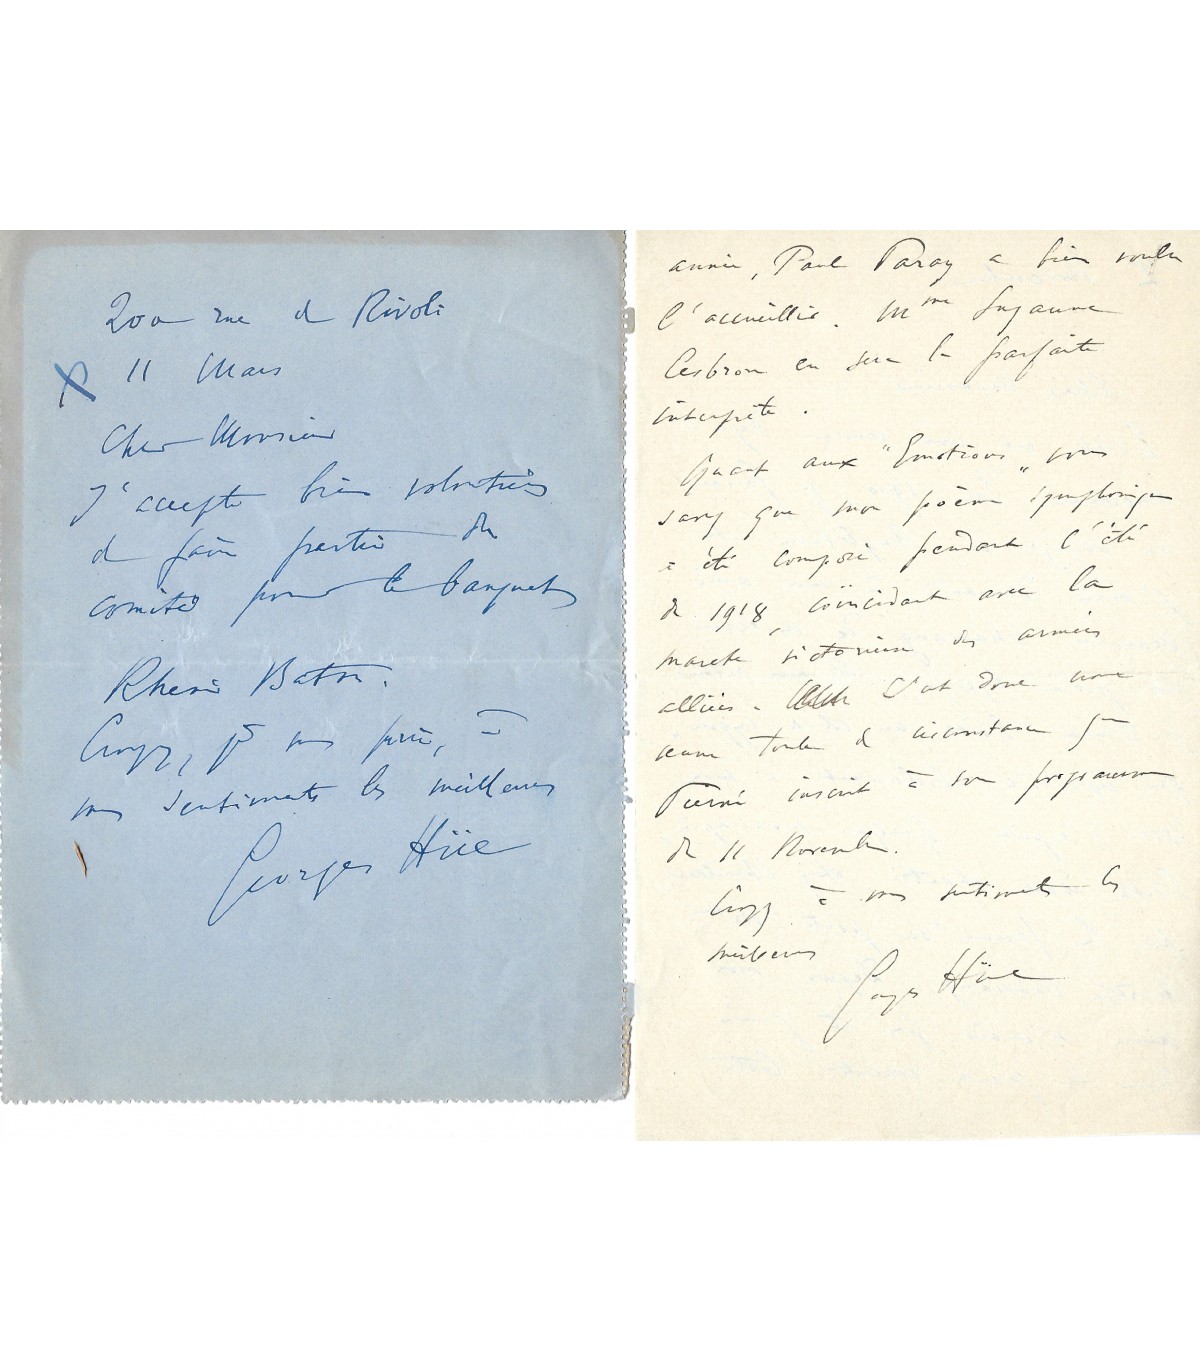 200 rue de Rivoli
11 Mars
Cher Monsieur
J'accepte bien volontiers
de faire partie du
comité pour le banquet
Rhené Baton.
Croyez, je vous prie, à
mes sentiments les meilleurs
Georges Hüe
année, Paul Paray a bien voulu
l'accueillir. Mme Suzanne
Cesbron en sera la parfaite
interprète.
Quant aux "Emotions" vous
savez que mon poème symphonique
a été composé pendant l'été
de 1918, coïncidant avec la
marche victorieuse des armées
alliées. C'est donc une
œuvre toute de circonstance que
Pierné inscrit à son programme
du 11 Novembre.
Croyez à mes sentiments les
meilleurs
Georges Hüe